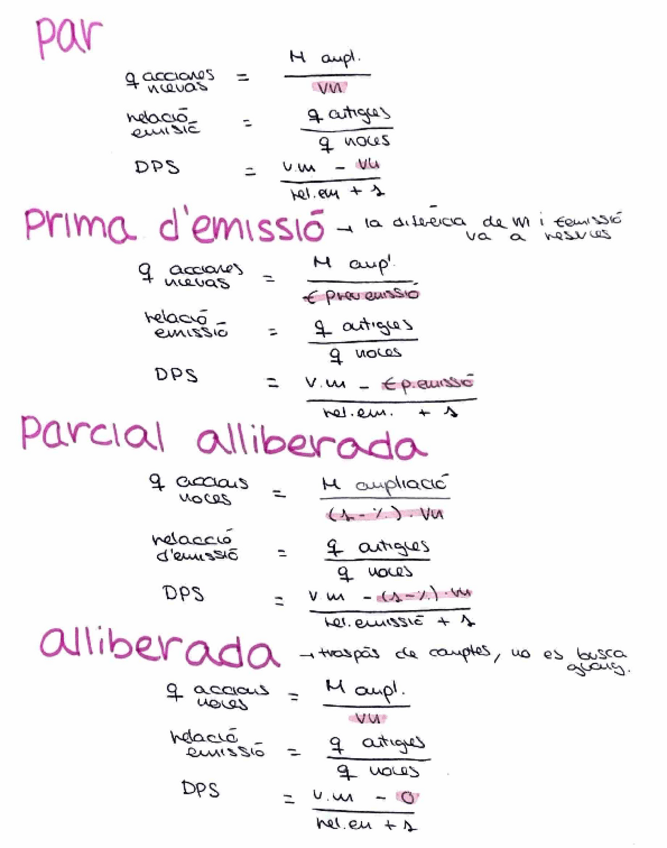 par
q acciones nuevas = M aupl. / VN
relació emisió = q antigues / q noves
DPS = v.m - VN / rel.em + 1
prima d'emissió → la diferècia de VN i €emissió va a reserves
q acciones nuevas = M aupl. / € preu emissió
relació emissió = q antigues / q noves
DPS = v.m - € p.emissió / rel.em. + 1
parcial alliberada
q accions noves = M ampliació / (1 - %) · VN
relacció d'emissió = q antigues / q noves
DPS = v m - (1-%) · VN / rel.emissió + 1
alliberada → traspàs de comptes, no es busca
q accions noves = M aupl. / VN
relació emissió = q antigues / q noves
DPS = v.m - 0 / rel.em + 1